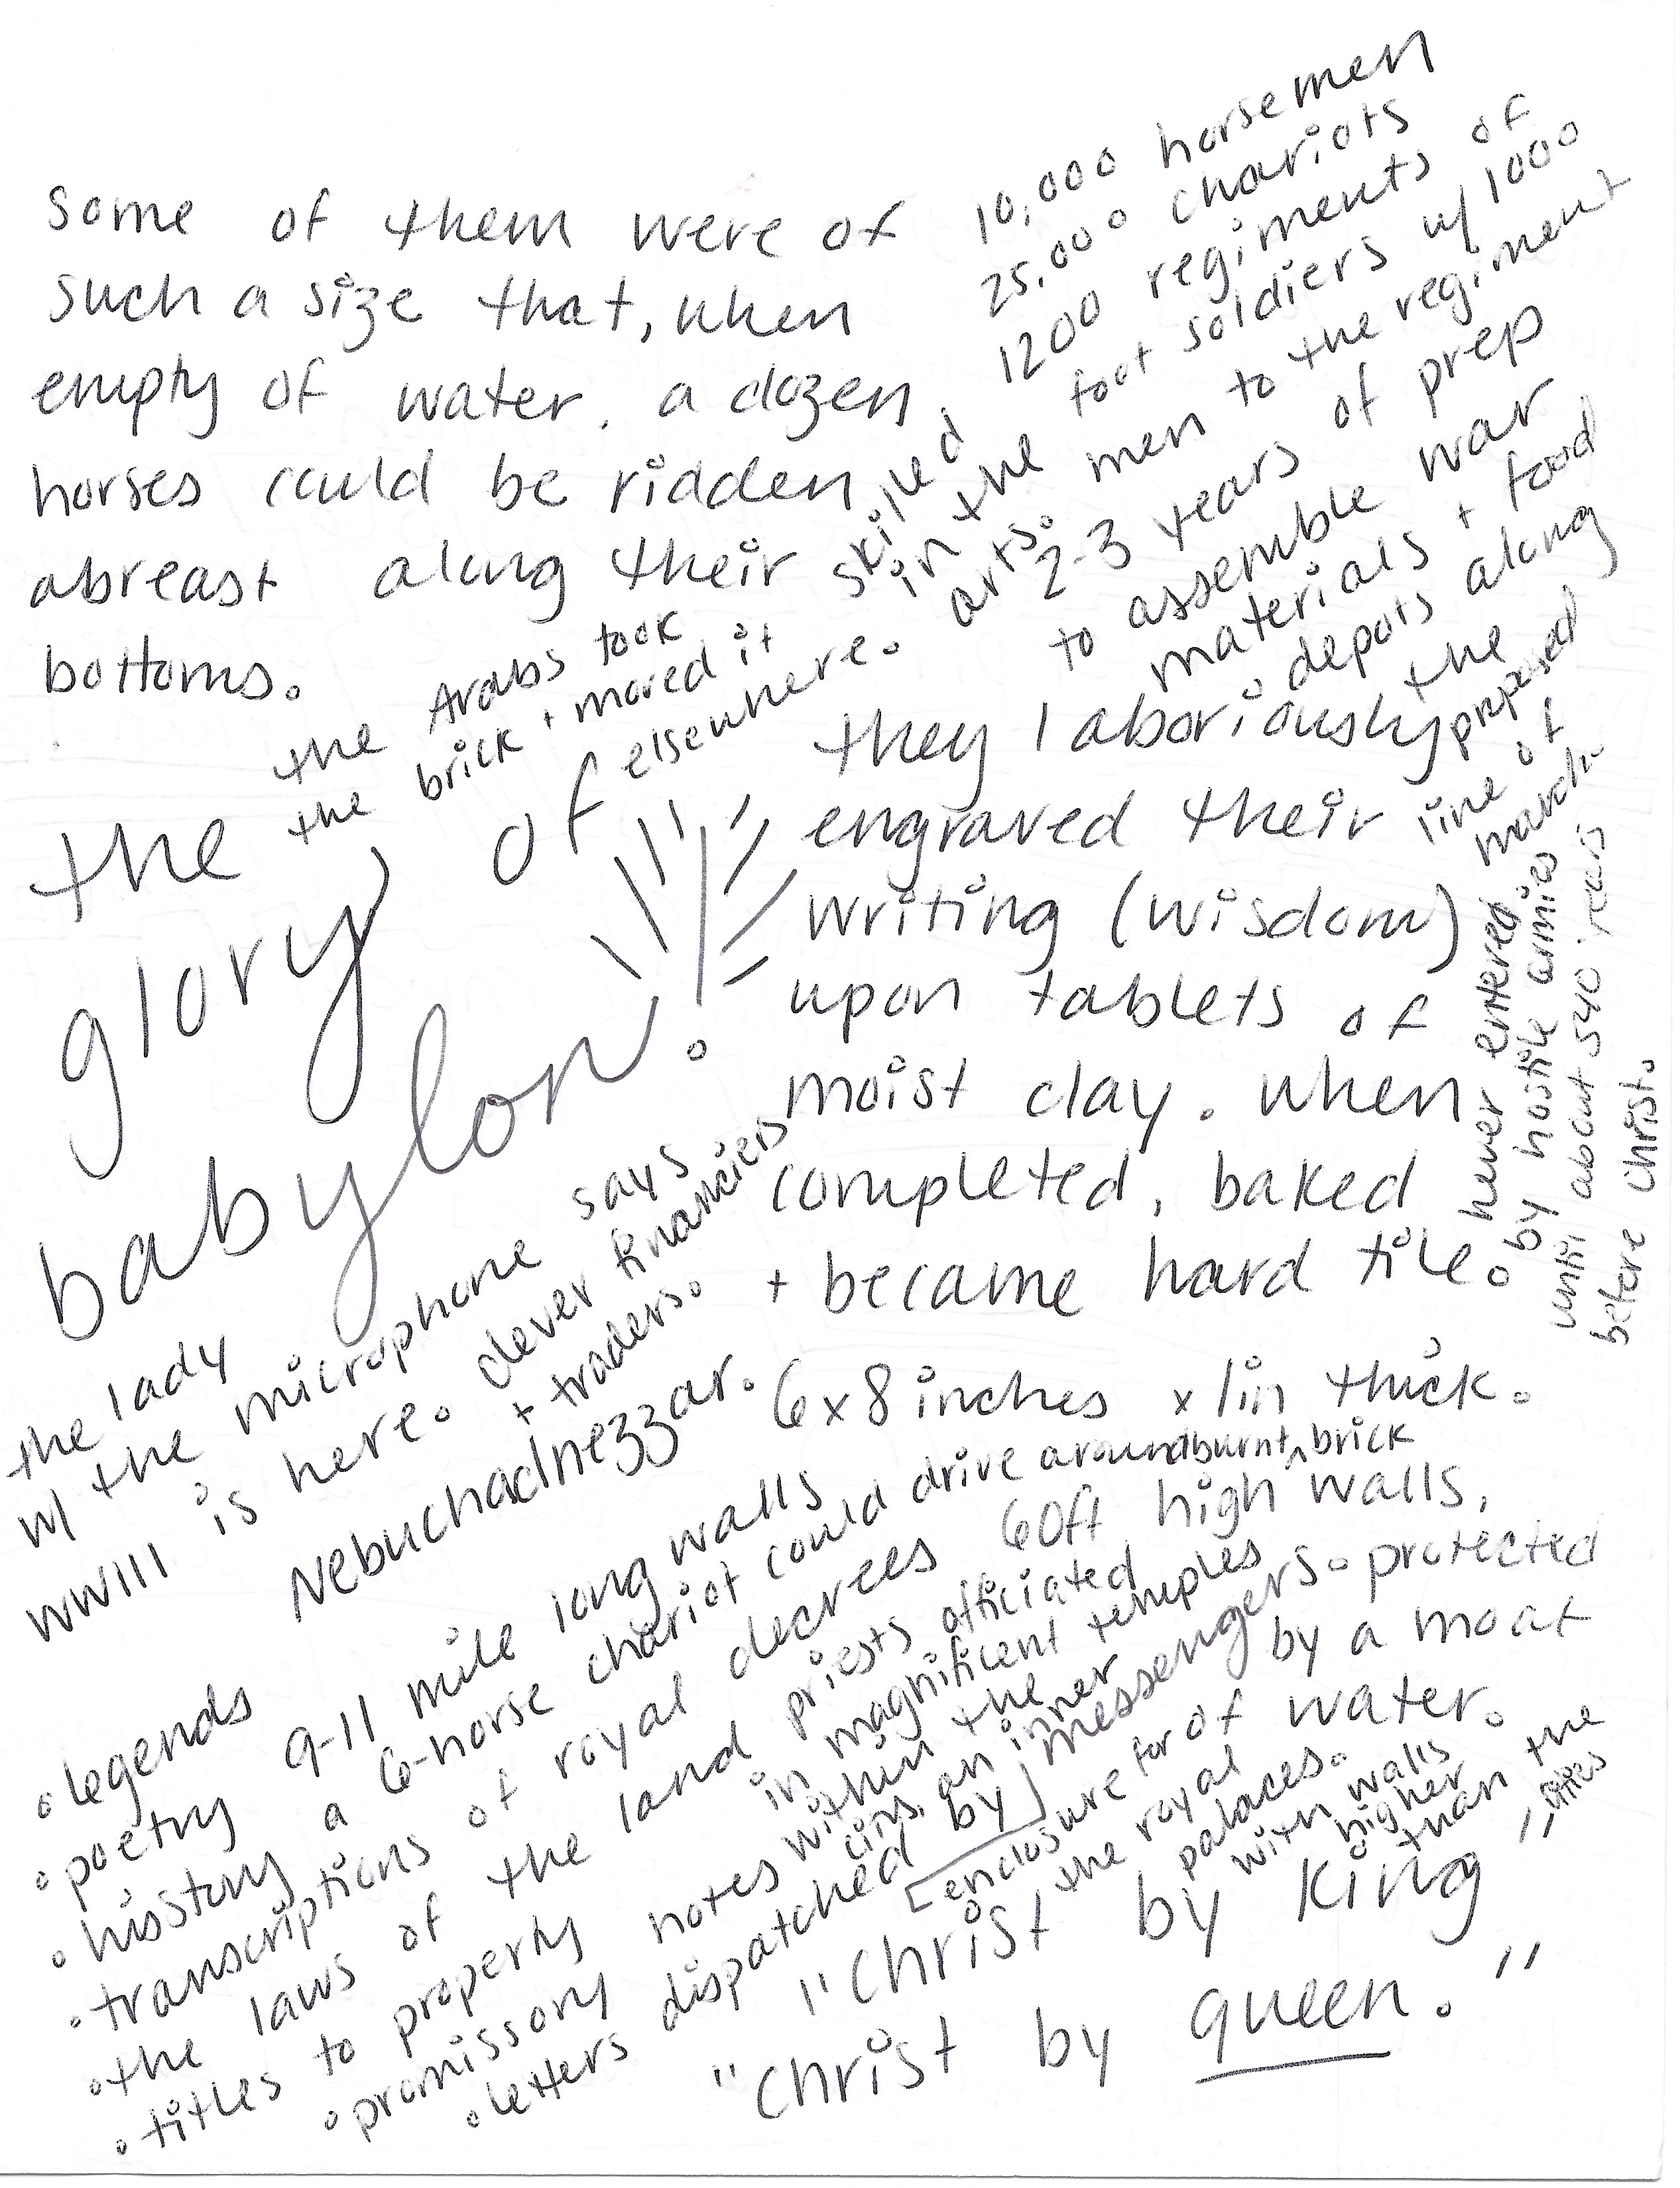 some of them were of
such a size that, when
empty of water, a dozen
horses could be ridden
abreast along their
bottoms.
10,000 horsemen
25,000 chariots
1200 regiments of
foot soldiers w/ 1000
men to the regiment
skilled
in the
arts.
2-3 years of prep
to assemble war
materials + food
depots along
the
proposed
line of
march.
the Arabs took
the brick + moved it
elsewhere.
the
glory of
babylon!
they laboriously
engraved their
writing (wisdom)
upon tablets of
moist clay. when
completed, baked
+ became hard tile.
never entered
by hostile armies
until about 540 years
before christ.
6x8 inches x 1in thick.
the lady
w/ the microphone says
WWIII is here.
clever financiers
+ traders.
Nebuchadnezzar.
9-11 mile long walls
a 6-horse chariot could drive around
60ft high burnt brick walls,
protected
by a moat
of water.
• legends
• poetry
• hisstory
• transcriptions of royal decrees
• the laws of the land
• titles to property
• promissory notes
• letters dispatched by messengers.
priests officiated
in magnificent temples
within the
city, an inner
[enclosure for
the royal
palaces.
with walls
higher
than the
cities
"Christ by King"
"Christ by queen."